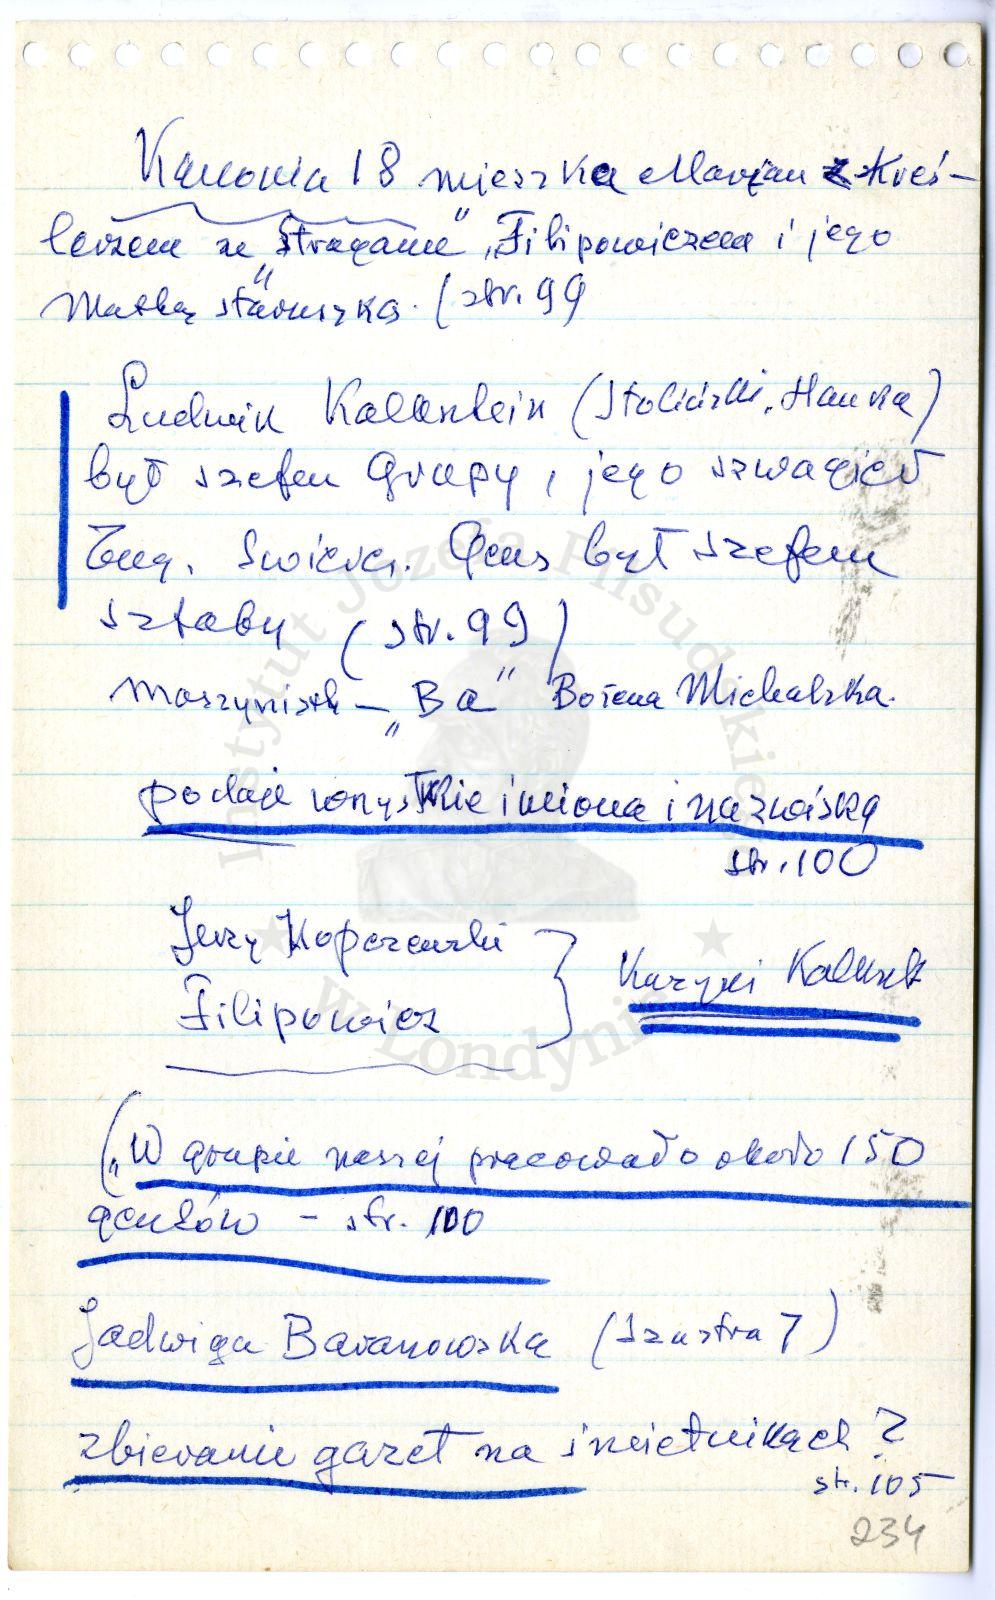 Kanonia 18 mieszka Marjan z Kreś-
lerzem ze "Straganu", Filipowiczem i jego
Matką staruszką. (str. 99
Ludwik Kalkstein (Stoliński, Hanka)
był szefem Grupy, jego szwagier
Eug. Świercz. Gens był szefem
sztabu (str. 99)
Maszynistk – "Ba" Bożena Michalska.
podaje wszystkie imiona i nazwiska
str. 100
Jerzy Kopczewski
Filipowicz
Kuzyni Kalkst
("W grupie naszej pracowało około 150
agentów – str. 100
Jadwiga Baranowska (Szustra 7)
zbieranie gazet na śmietnikach?
str. 105
234
Instytut Józefa Piłsudskiego
w Londynie